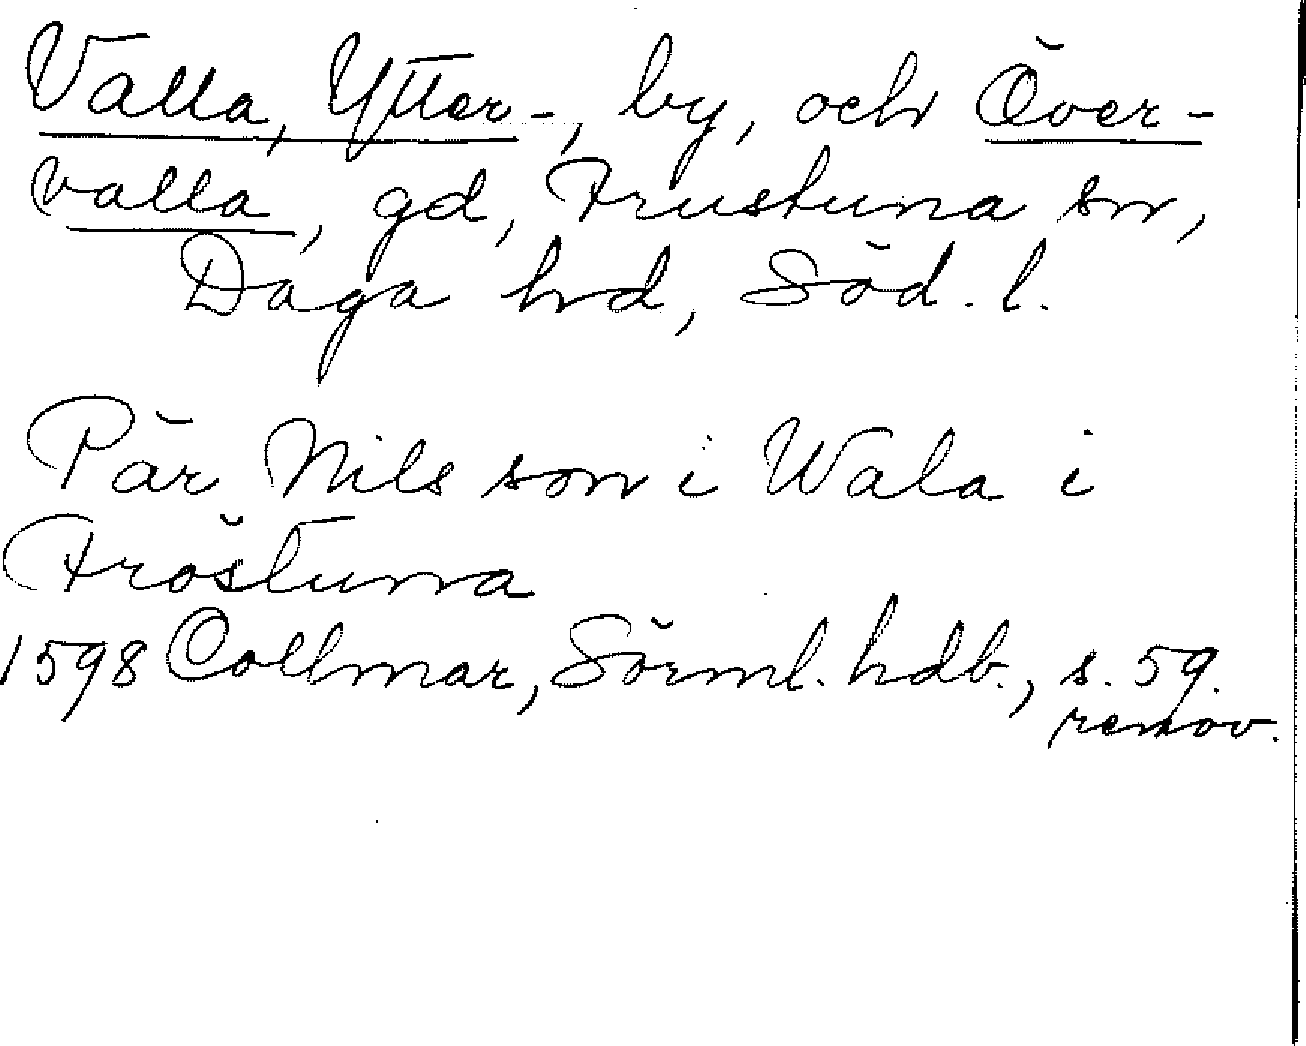 Valla, Ytter-, by, och Över-
valla, gd, Frustuna sn,
Daga hd, Söd. l.
Pär Nils son i Wala i
Fröstunna
1598 Collmar, Sörml. hdb., s. 59.
renov.